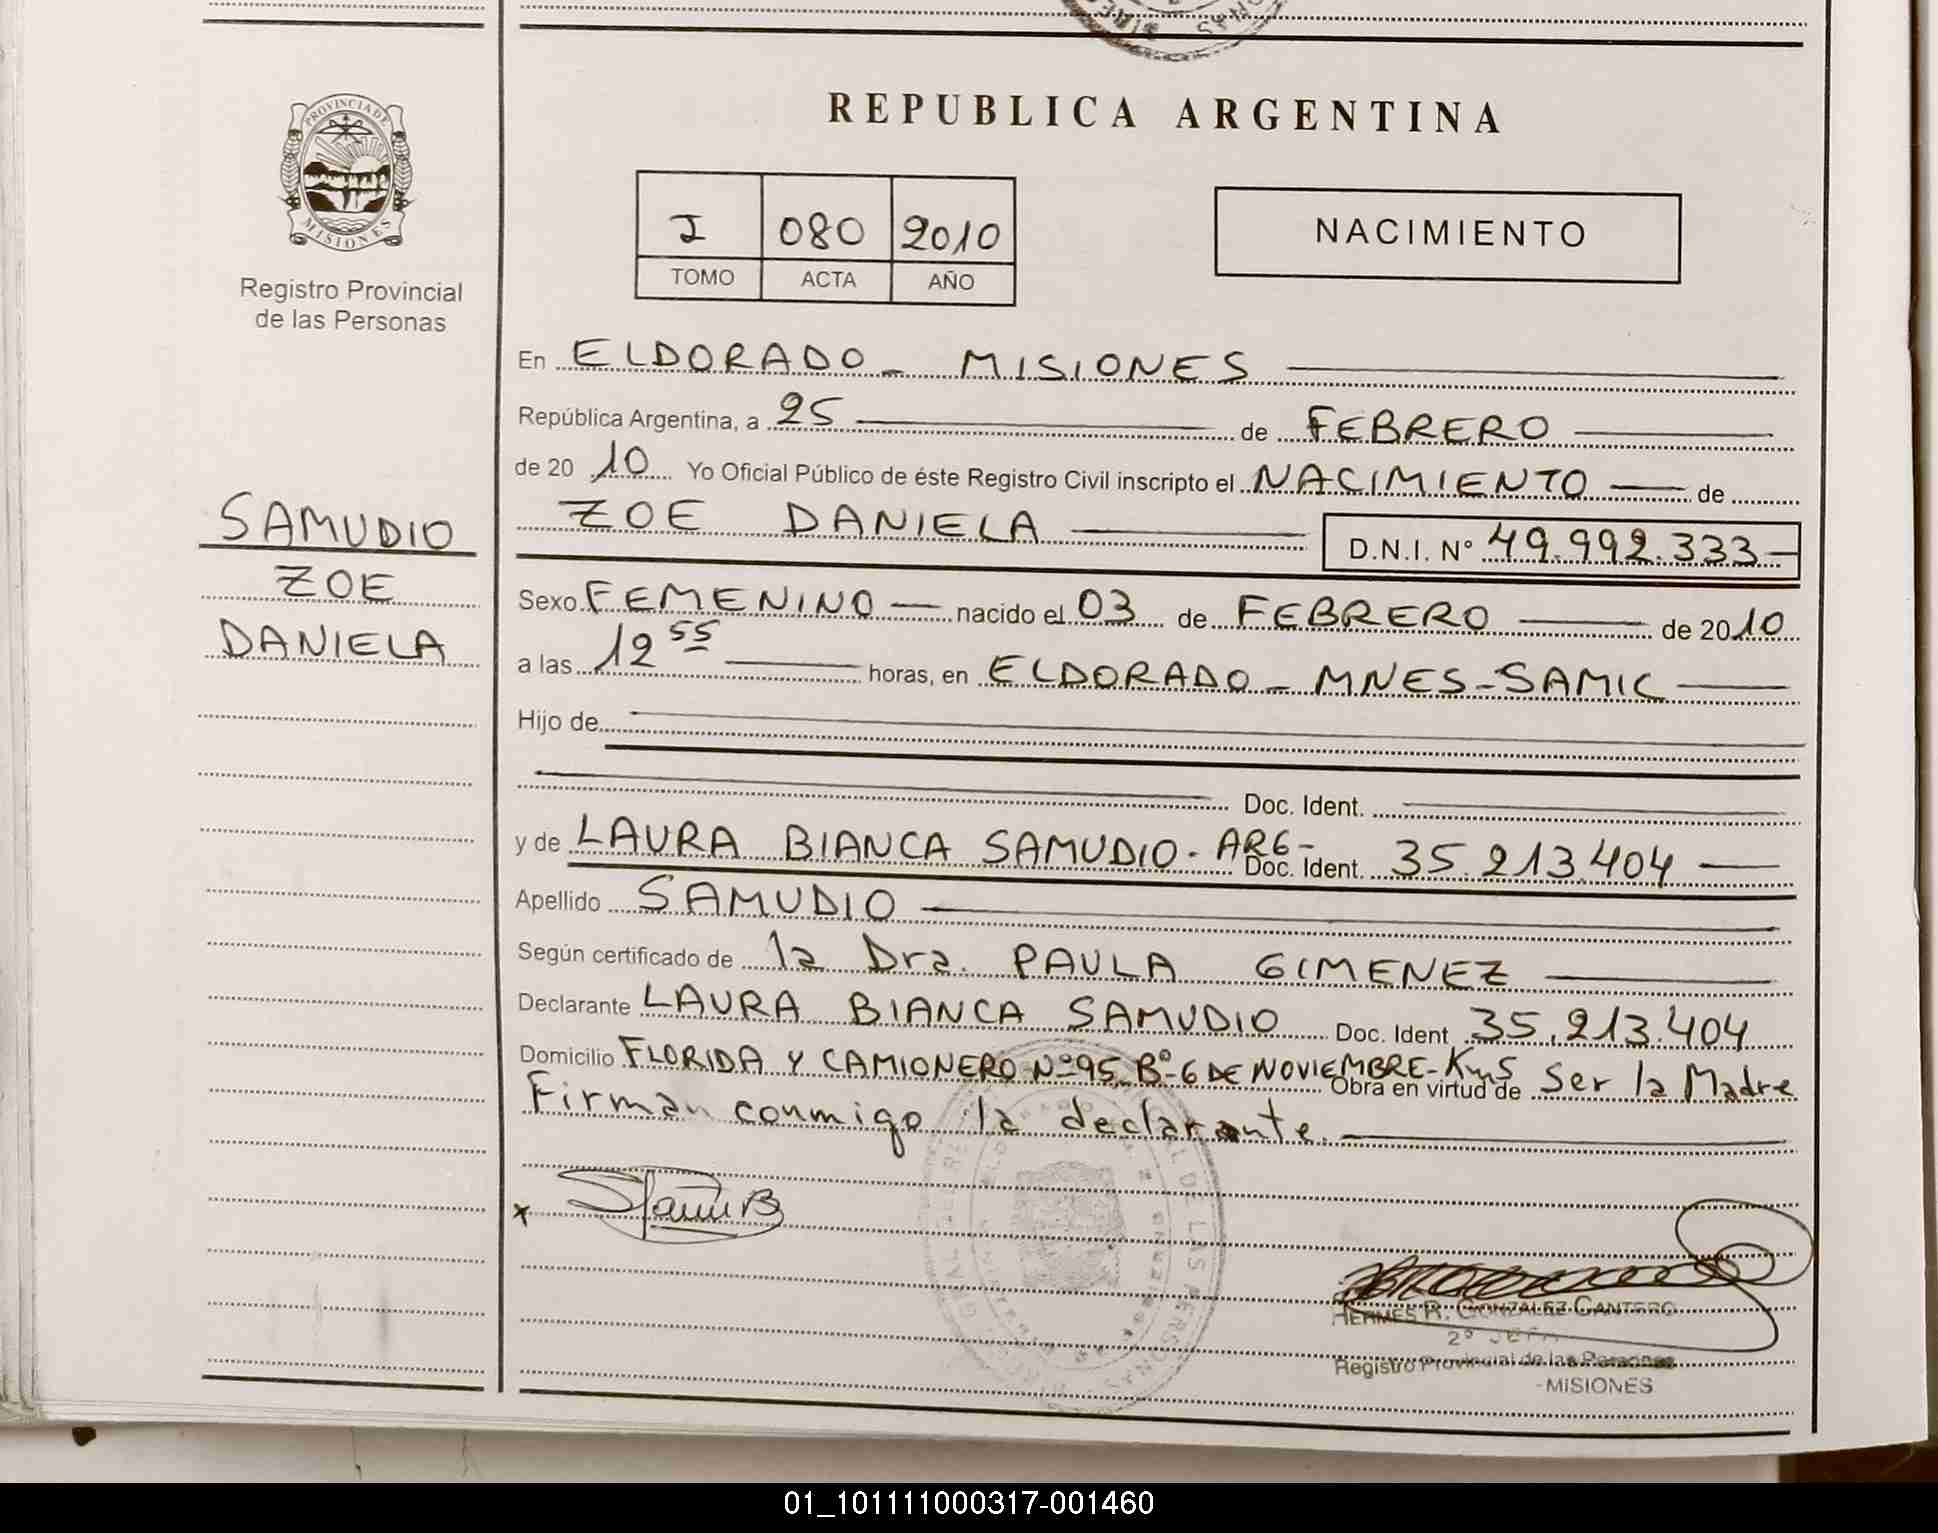 PROVINCIA DE
MISIONES
Registro Provincial
de las Personas
SAMUDIO
ZOE
DANIELA
REPUBLICA ARGENTINA
I 080 2010
TOMO ACTA AÑO
NACIMIENTO
En ELDORADO - MISIONES
República Argentina, a 25 de FEBRERO
de 20 10 Yo Oficial Público de éste Registro Civil inscripto el NACIMIENTO de
ZOE DANIELA D.N.I. N° 49.992.333
Sexo FEMENINO nacido el 03 de FEBRERO de 2010
a las 12 55 horas, en ELDORADO - MNES - SAMIC
Hijo de
Doc. Ident.
y de LAURA BIANCA SAMUDIO - ARG - Doc. Ident. 35.213.404
Apellido SAMUDIO
Según certificado de la Dra. PAULA GIMENEZ
Declarante LAURA BIANCA SAMUDIO Doc. Ident 35.213.404
Domicilio FLORIDA Y CAMIONERO Nº 95 Bº 6 DE NOVIEMBRE - Km5 Obra en virtud de Ser la Madre
Firman conmigo la declarante.
HERMES R. GONZALEZ CANTERO
2º JEFE
Registro Provincial de las Personas
-MISIONES
01_101111000317-001460